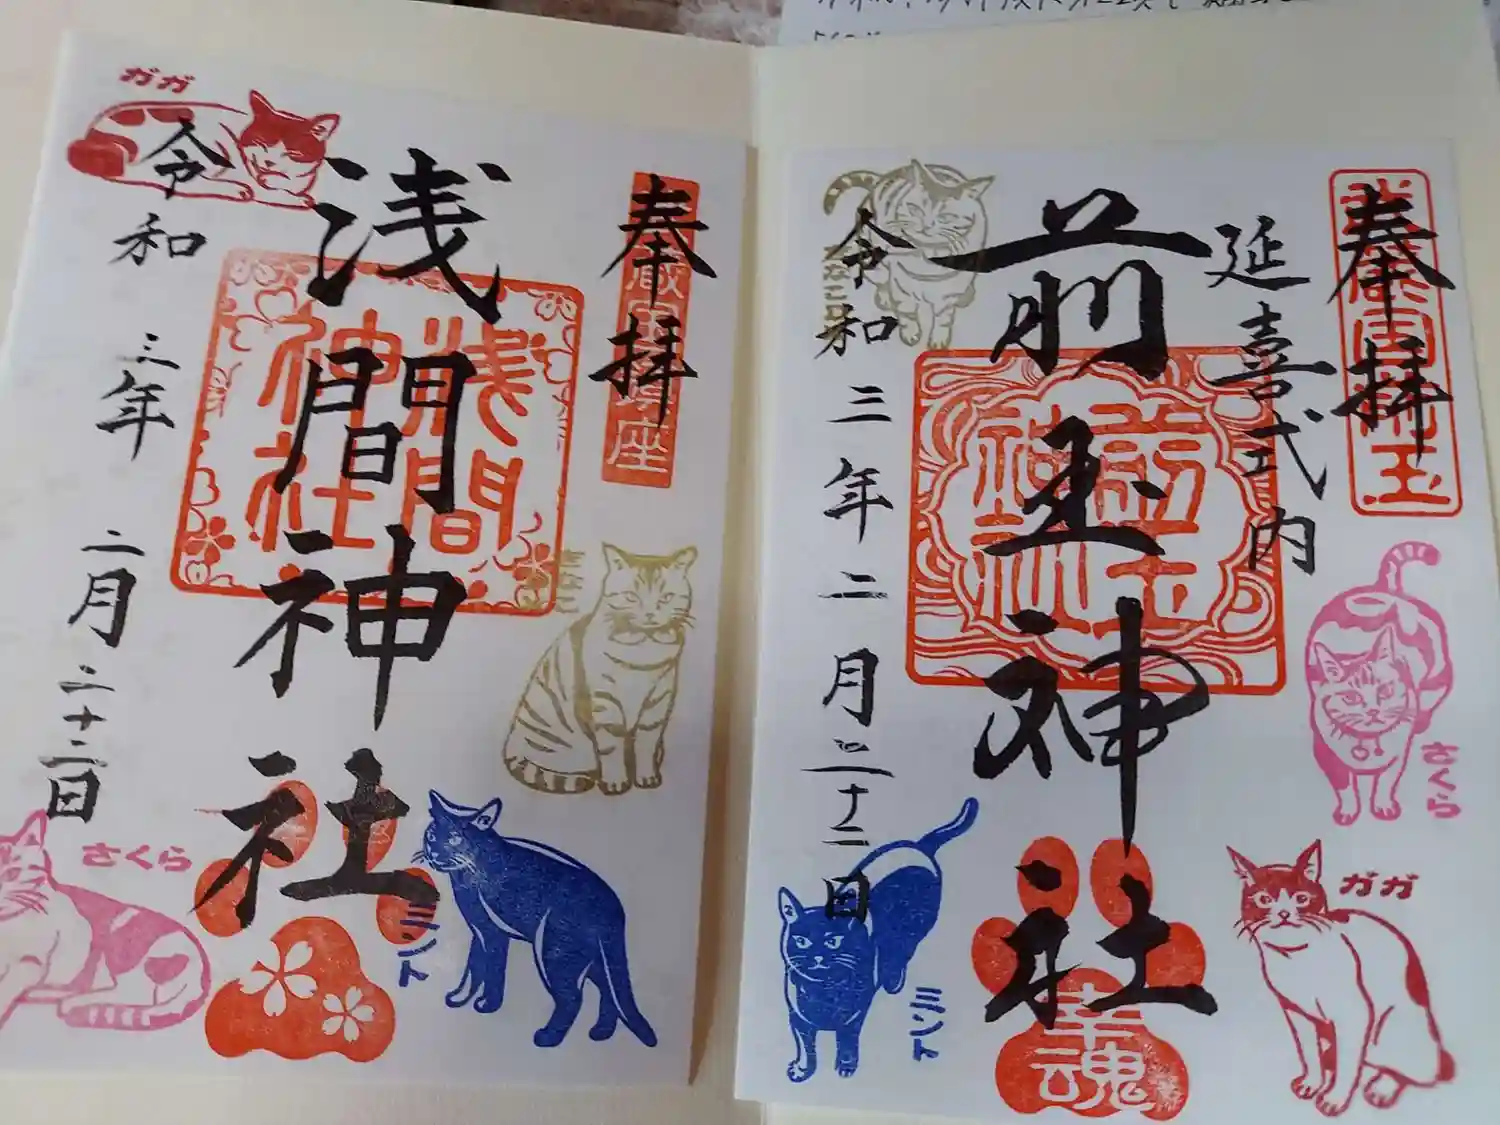 奉拝
延喜式内
前玉神社
令和三年二月二十二日
さくら
ガガ
ミント
きなこ
幸魂
奉拝
浅間神社
浅間神社
令和三年二月二十二日
ガガ
きなこ
ミント
さくら